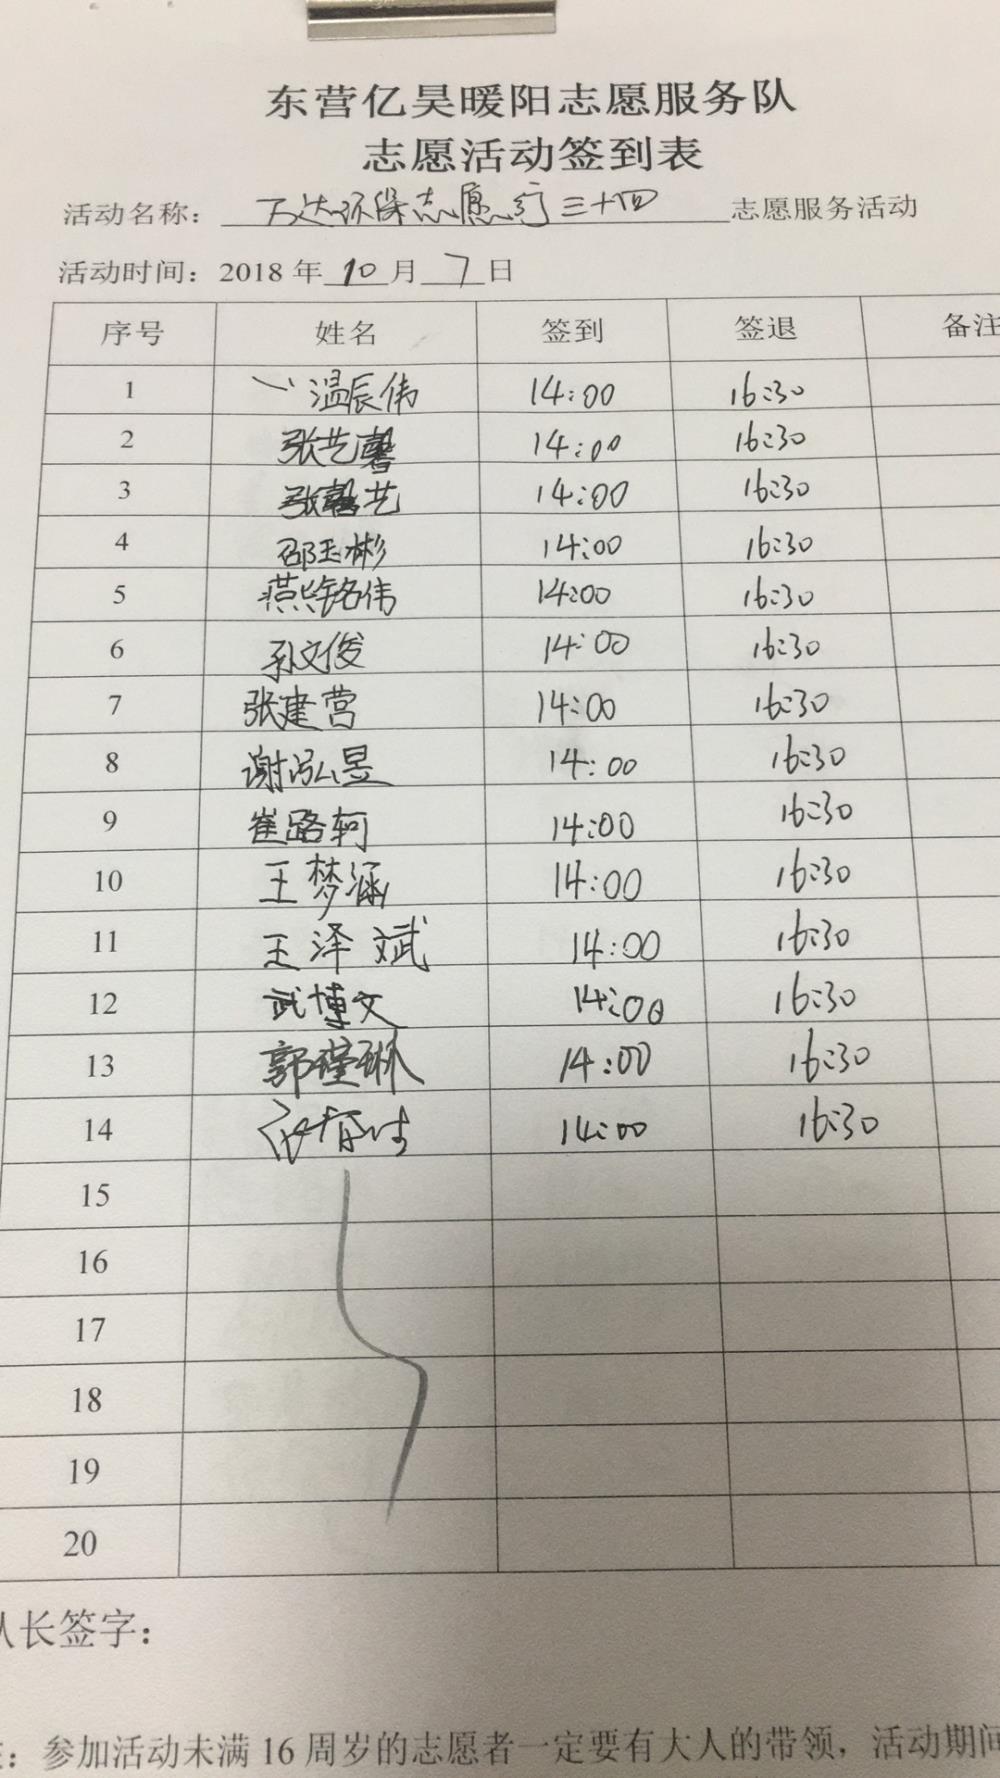 东营亿昊暖阳志愿服务队
志愿活动签到表
活动名称：万达环保志愿行三十四志愿服务活动
活动时间：2018年10月7日
序号 姓名 签到 签退 备注
1 温辰伟 14:00 16:30
2 张艺馨 14:00 16:30
3 张馨艺 14:00 16:30
4 邵玉彬 14:00 16:30
5 燕铭伟 14:00 16:30
6 孙文俊 14:00 16:30
7 张建营 14:00 16:30
8 谢泓昱 14:00 16:30
9 崔路轲 14:00 16:30
10 王梦涵 14:00 16:30
11 王泽斌 14:00 16:30
12 武博文 14:00 16:30
13 郭瑾琳 14:00 16:30
14 14:00 16:30
15
16
17
18
19
20
队长签字：
：参加活动未满16周岁的志愿者一定要有大人的带领，活动期间